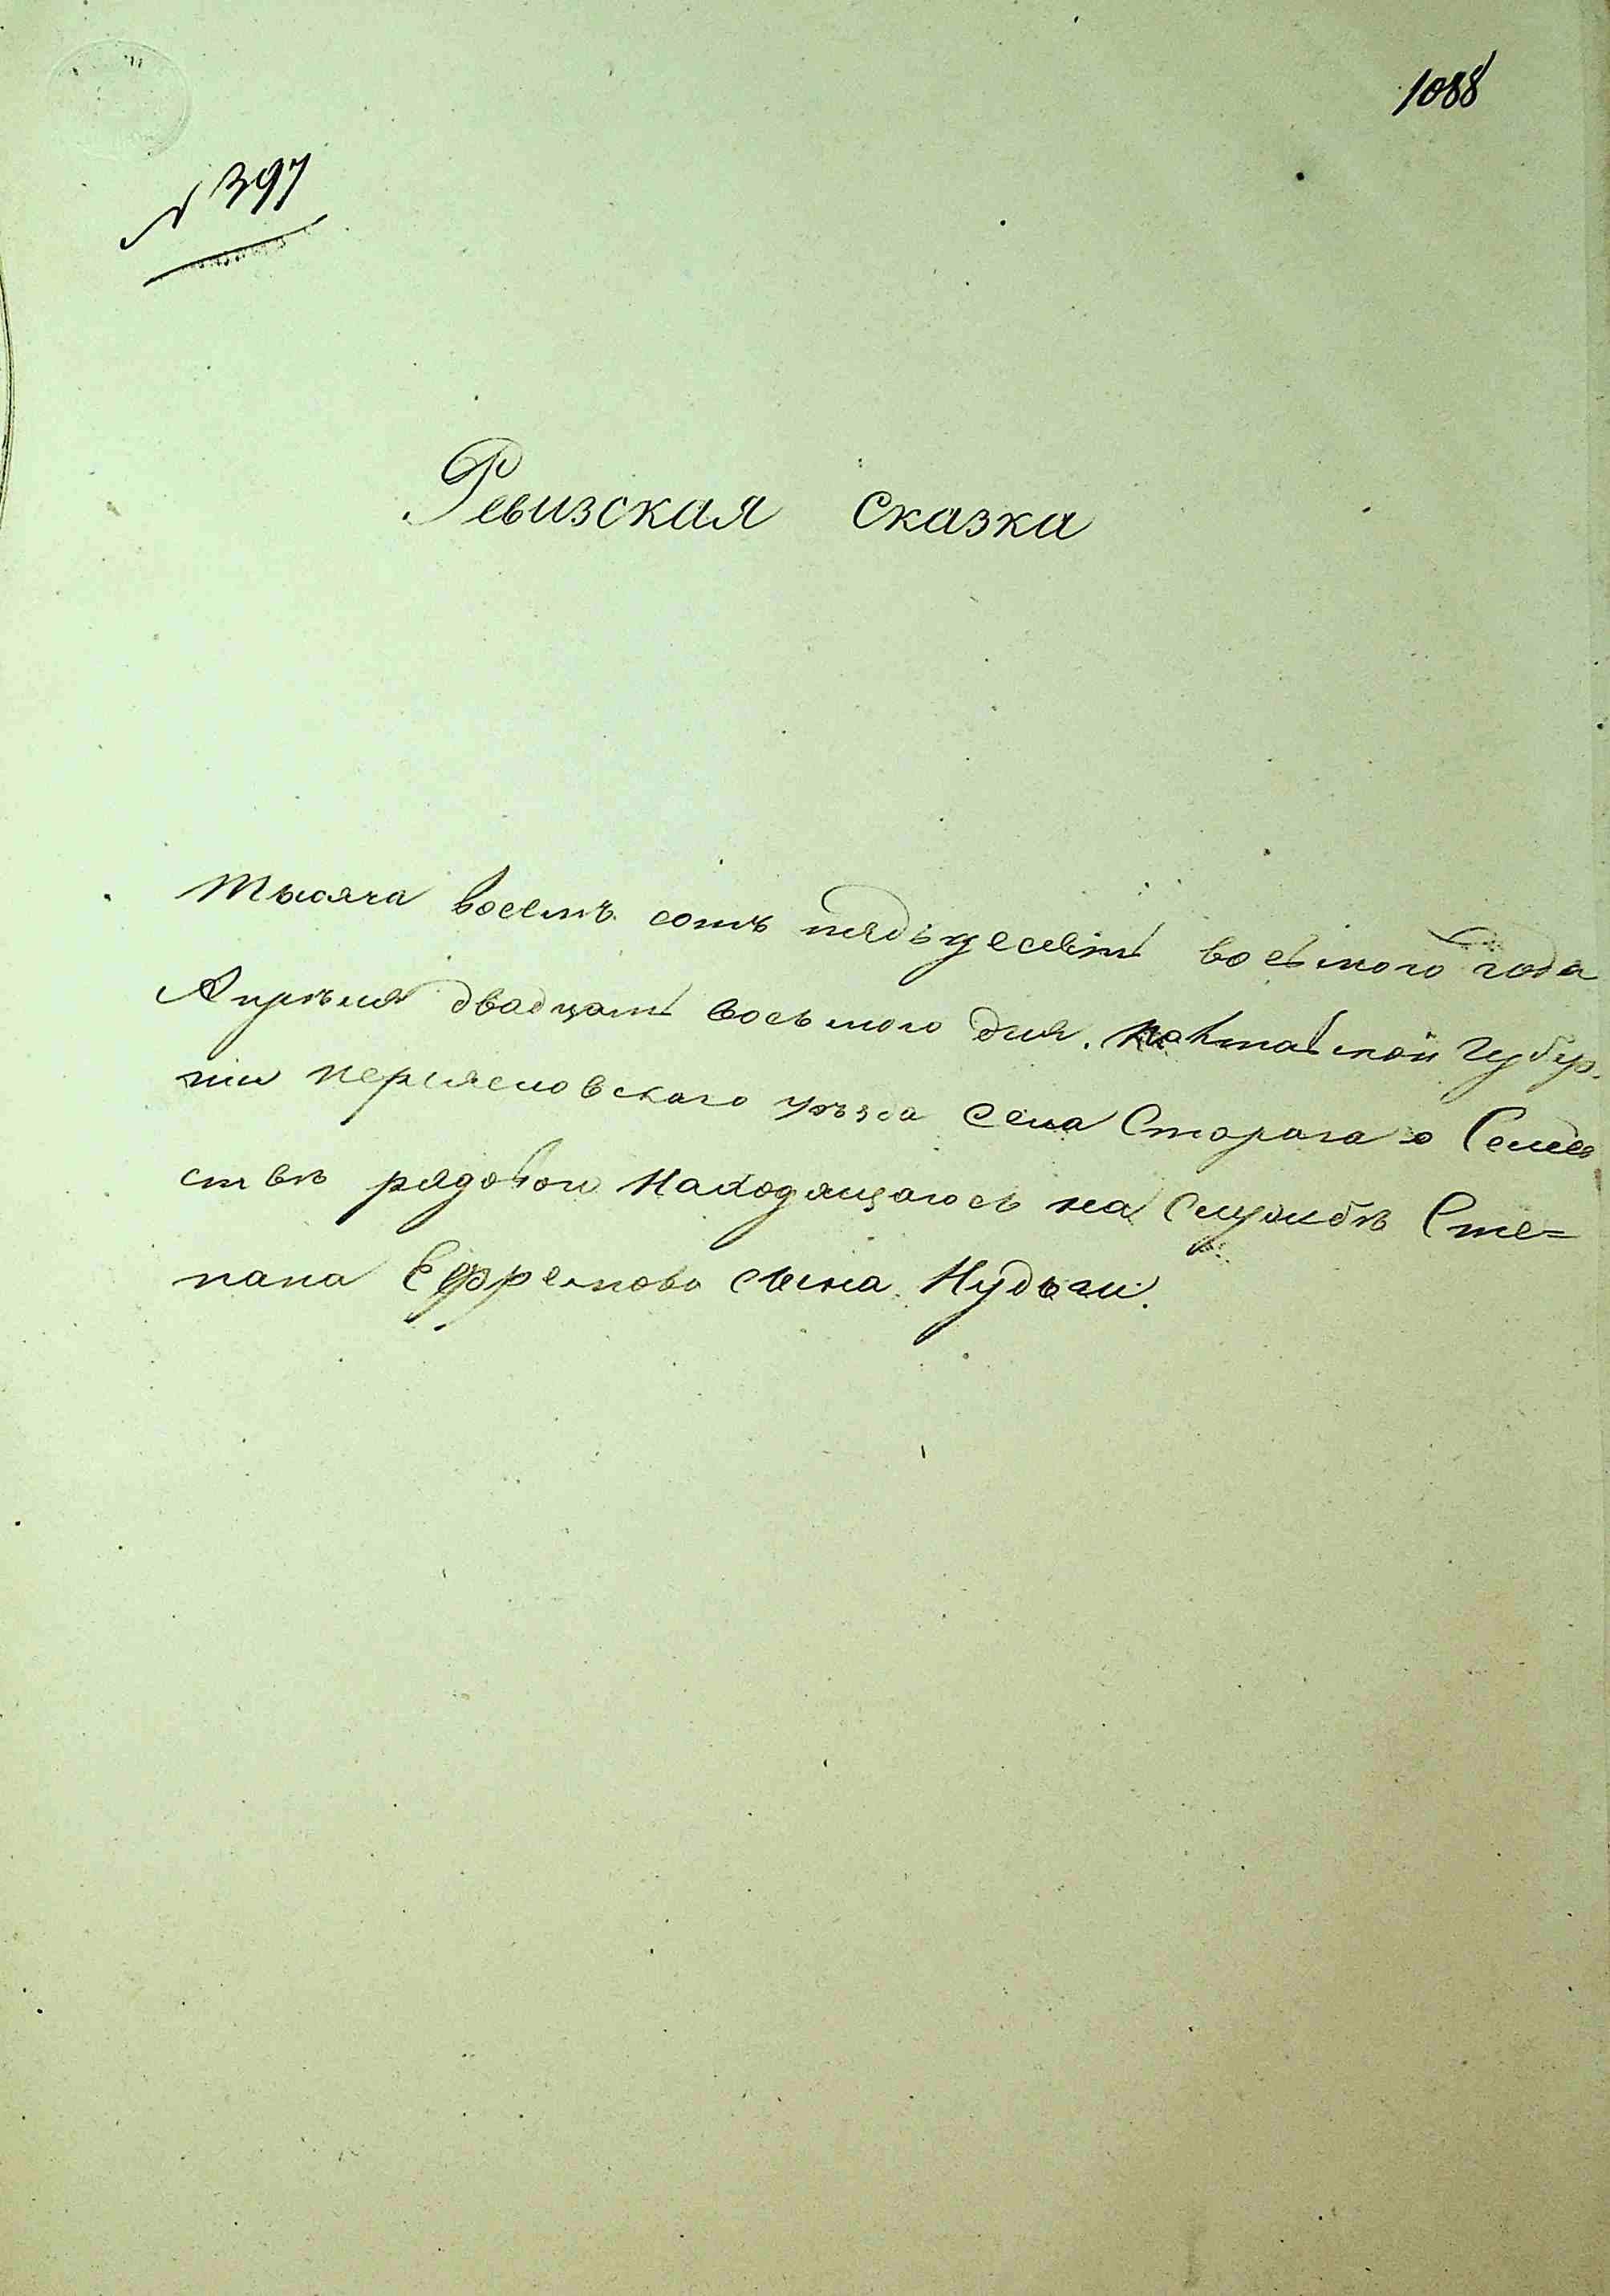 1088
№ 397
Ревизская Сказка
Тысяча восемъ сотъ пядьдесетъ восьмого года
Апреля двадцать восьмого дня. Полтавской Губер.
нии переясловского уѣзда Села Старого о Семей
ствѣ рядовои Находящагось на Службѣ Сте=
пана Ефремова сына Нудьги.